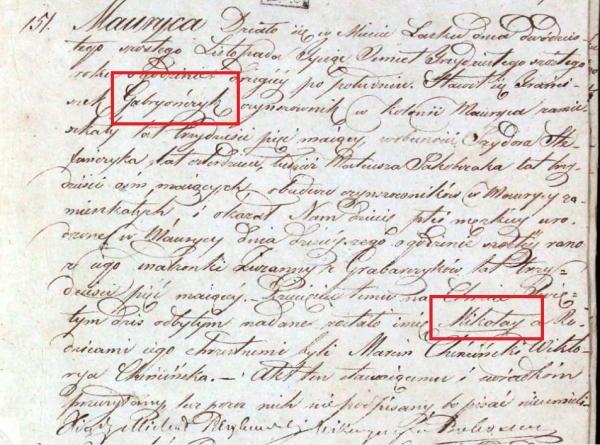 151. Mauryca Działo się w Mieście Łasku dnia dwódzies-
tego szóstego Listopada Tysiąc Ośmset Trzydziestego szóstego
roku o godzinie drugiéy po południu. Stawił się Franci-
szek Gabryończyk czynszownik w kolonii Mauryca zamie-
szkały lat trzydzieści pięć maiący, w obecności Izydora Ste-
fańczyka lat czterdzieści, tudzież Mateusza Jakobiaka lat trzy-
dzieści osm maiących, obudwu czynszowników w Maurycy za-
mieszkałych i okazał Nam dziecię płci męskiey uro-
dzone w Maurycy dnia dzisieyszego o godzinie szóstéy rano
z iego małżonki Zuzanny z Grabarczyków, lat trzy-
dzieści pięć maiącéy. Dziecięciu temu na Chrzcie Świę-
tym dziś odbytym nadane zostało imię Mikołay a Ro-
dzicami iego chrzestnemi byli Marcin Chóciński Wikto-
rya Chócińska. — Akt ten stawaiącemu i świadkom
przeczytany lecz przez nich nie podpisany bo pisać nieumieli